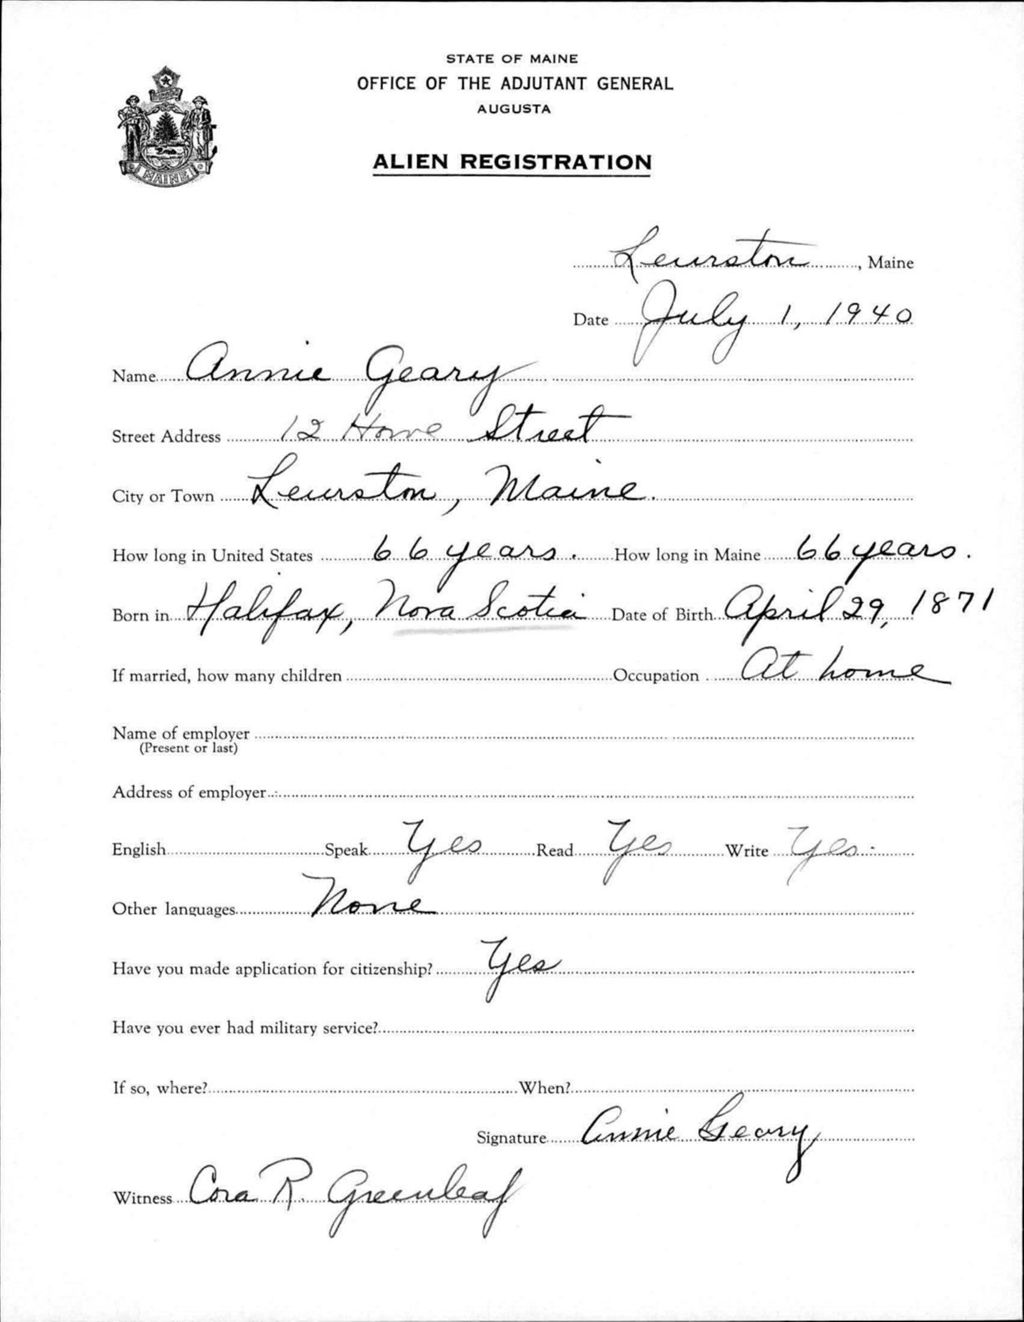 STATE OF MAINE
OFFICE OF THE ADJUTANT GENERAL
AUGUSTA
ALIEN REGISTRATION
MAINE
Lewiston, Maine
Date July 1, 1940
Name Annie Geary
Street Address 12 Howe Street
City or Town Lewiston, Maine.
How long in United States 66 years. How long in Maine 66 years.
Born in Halifax, Nova Scotia Date of Birth April 29, 1871
If married, how many children Occupation At home
Name of employer
(Present or last)
Address of employer
English Speak Yes Read Yes Write Yes.
Other languages None
Have you made application for citizenship? Yes
Have you ever had military service?
If so, where? When?
Signature Annie Geary
Witness Cora R. Greenleaf